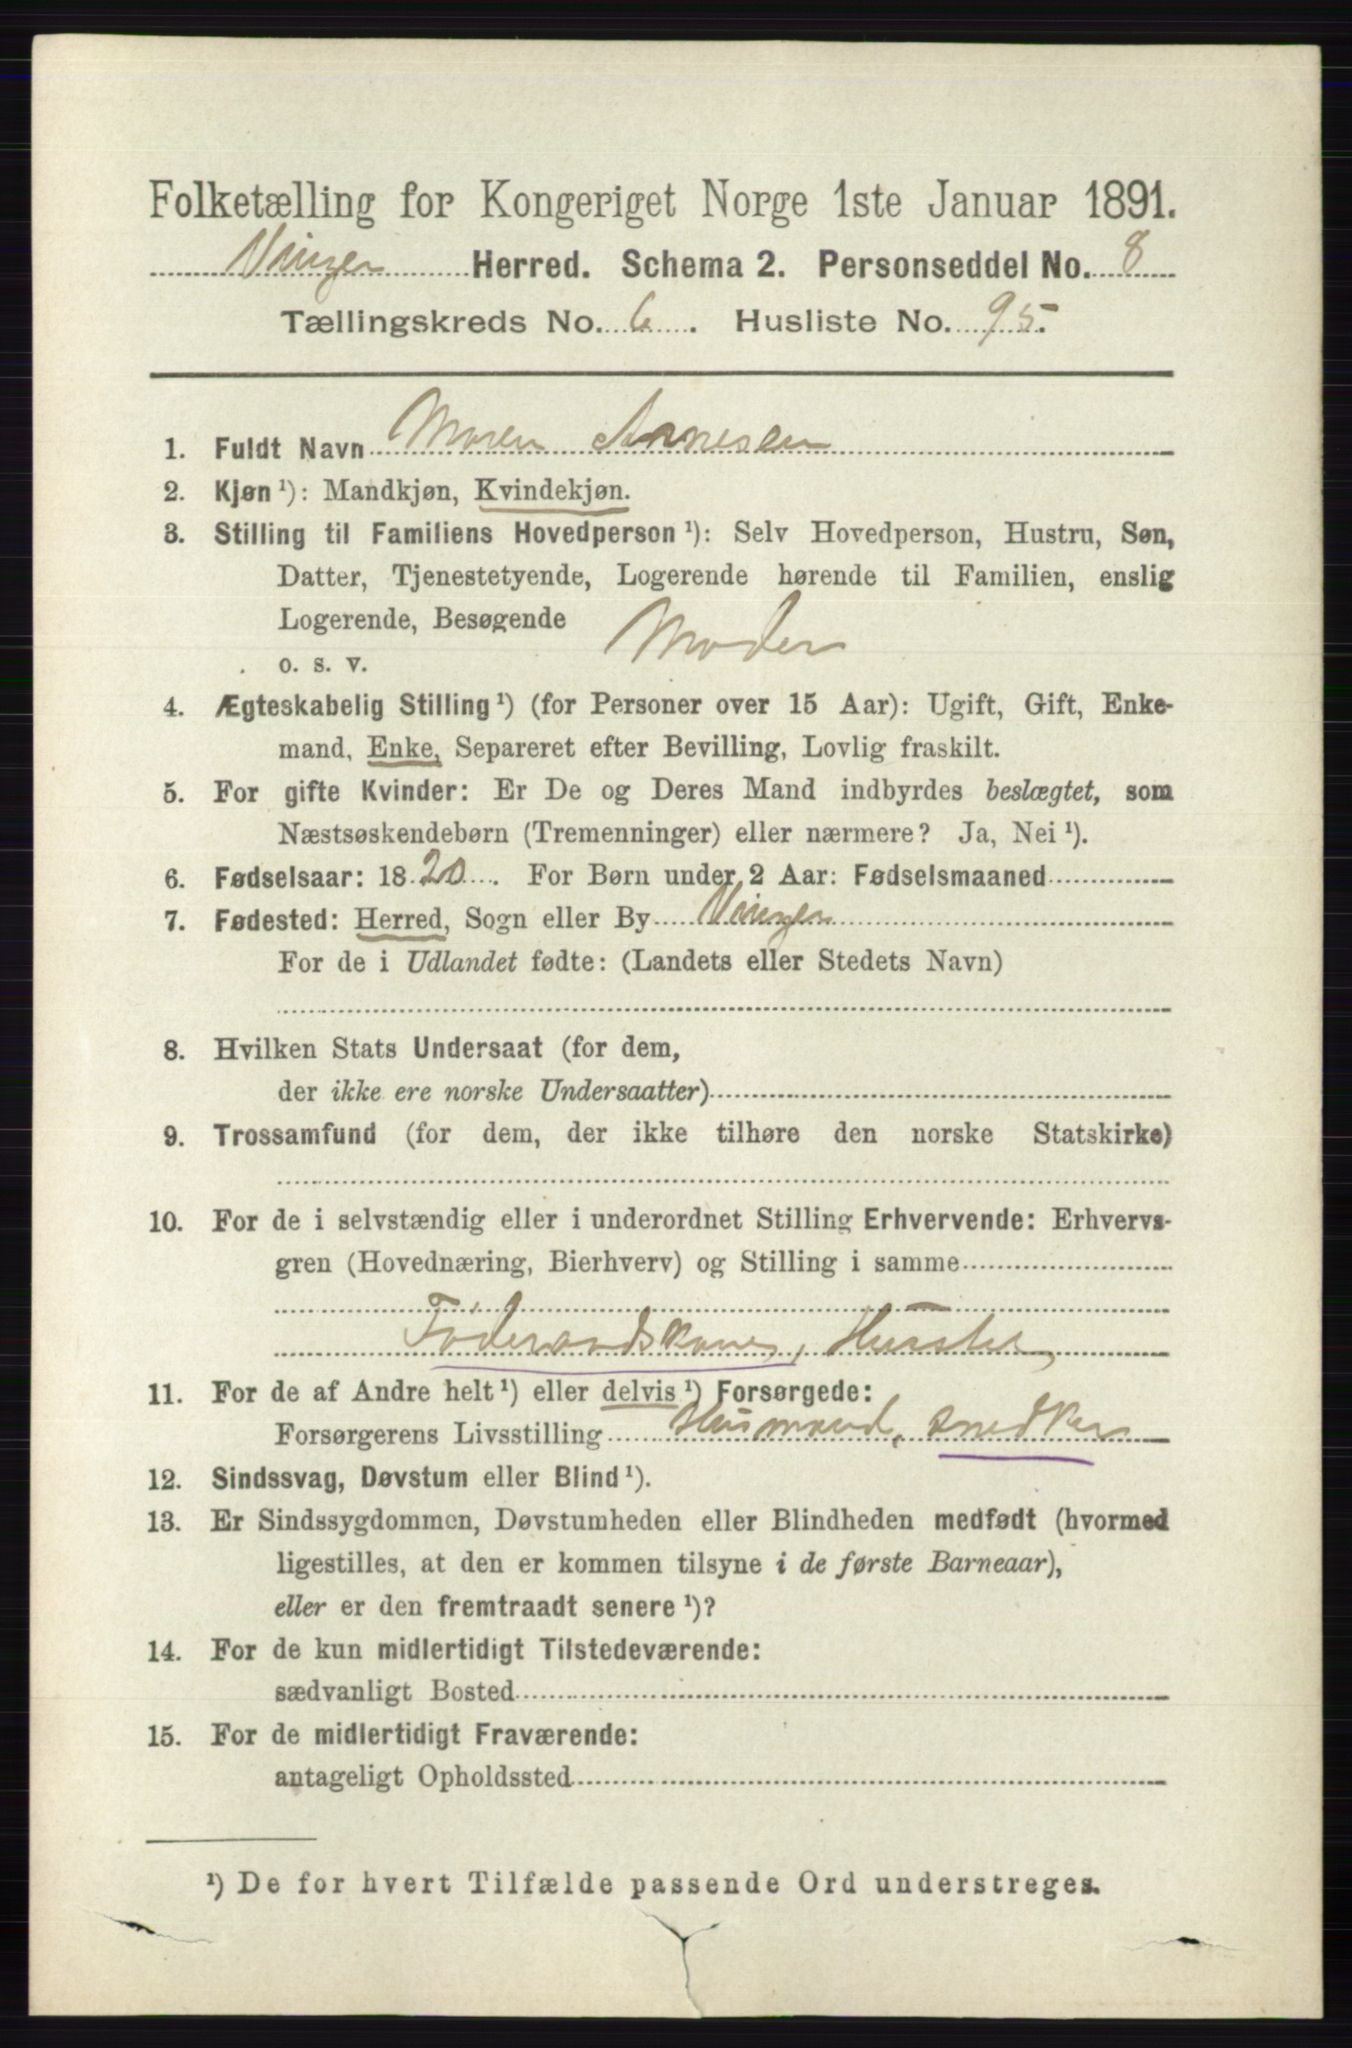 Folketælling for Kongeriget Norge 1ste Januar 1891.
Vinger Herred. Schema 2. Personseddel No. 8
Tællingskreds No. 6. Husliste No. 95.
1. Fuldt Navn Maren Arnesen
2. Kjøn ¹): Mandkjøn, Kvindekjøn.
3. Stilling til Familiens Hovedperson ¹): Selv Hovedperson, Hustru, Søn,
Datter, Tjenestetyende, Logerende hørende til Familien, enslig
Logerende, Besøgende
o. s. v. Moder
4. Ægteskabelig Stilling ¹) (for Personer over 15 Aar): Ugift, Gift, Enke-
mand, Enke, Separeret efter Bevilling, Lovlig fraskilt.
5. For gifte Kvinder: Er De og Deres Mand indbyrdes beslægtet, som
Næstsøskendebørn (Tremenninger) eller nærmere? Ja, Nei ¹).
6. Fødselsaar: 1820. For Børn under 2 Aar: Fødselsmaaned
7. Fødested: Herred, Sogn eller By Vinger
For de i Udlandet fødte: (Landets eller Stedets Navn)
8. Hvilken Stats Undersaat (for dem,
der ikke ere norske Undersaatter)
9. Trossamfund (for dem, der ikke tilhøre den norske Statskirke)
10. For de i selvstændig eller i underordnet Stilling Erhvervende: Erhvervs-
gren (Hovednæring, Bierhverv) og Stilling i samme
Føderaadskone,
11. For de af Andre helt ¹) eller delvis ¹) Forsørgede:
Forsørgerens Livsstilling Husmand, snedker
12. Sindssvag, Døvstum eller Blind ¹).
13. Er Sindssygdommen, Døvstumheden eller Blindheden medfødt (hvormed
ligestilles, at den er kommen tilsyne i de første Barneaar),
eller er den fremtraadt senere ¹)?
14. For de kun midlertidigt Tilstedeværende:
sædvanligt Bosted
15. For de midlertidigt Fraværende:
antageligt Opholdssted
¹) De for hvert Tilfælde passende Ord understreges.